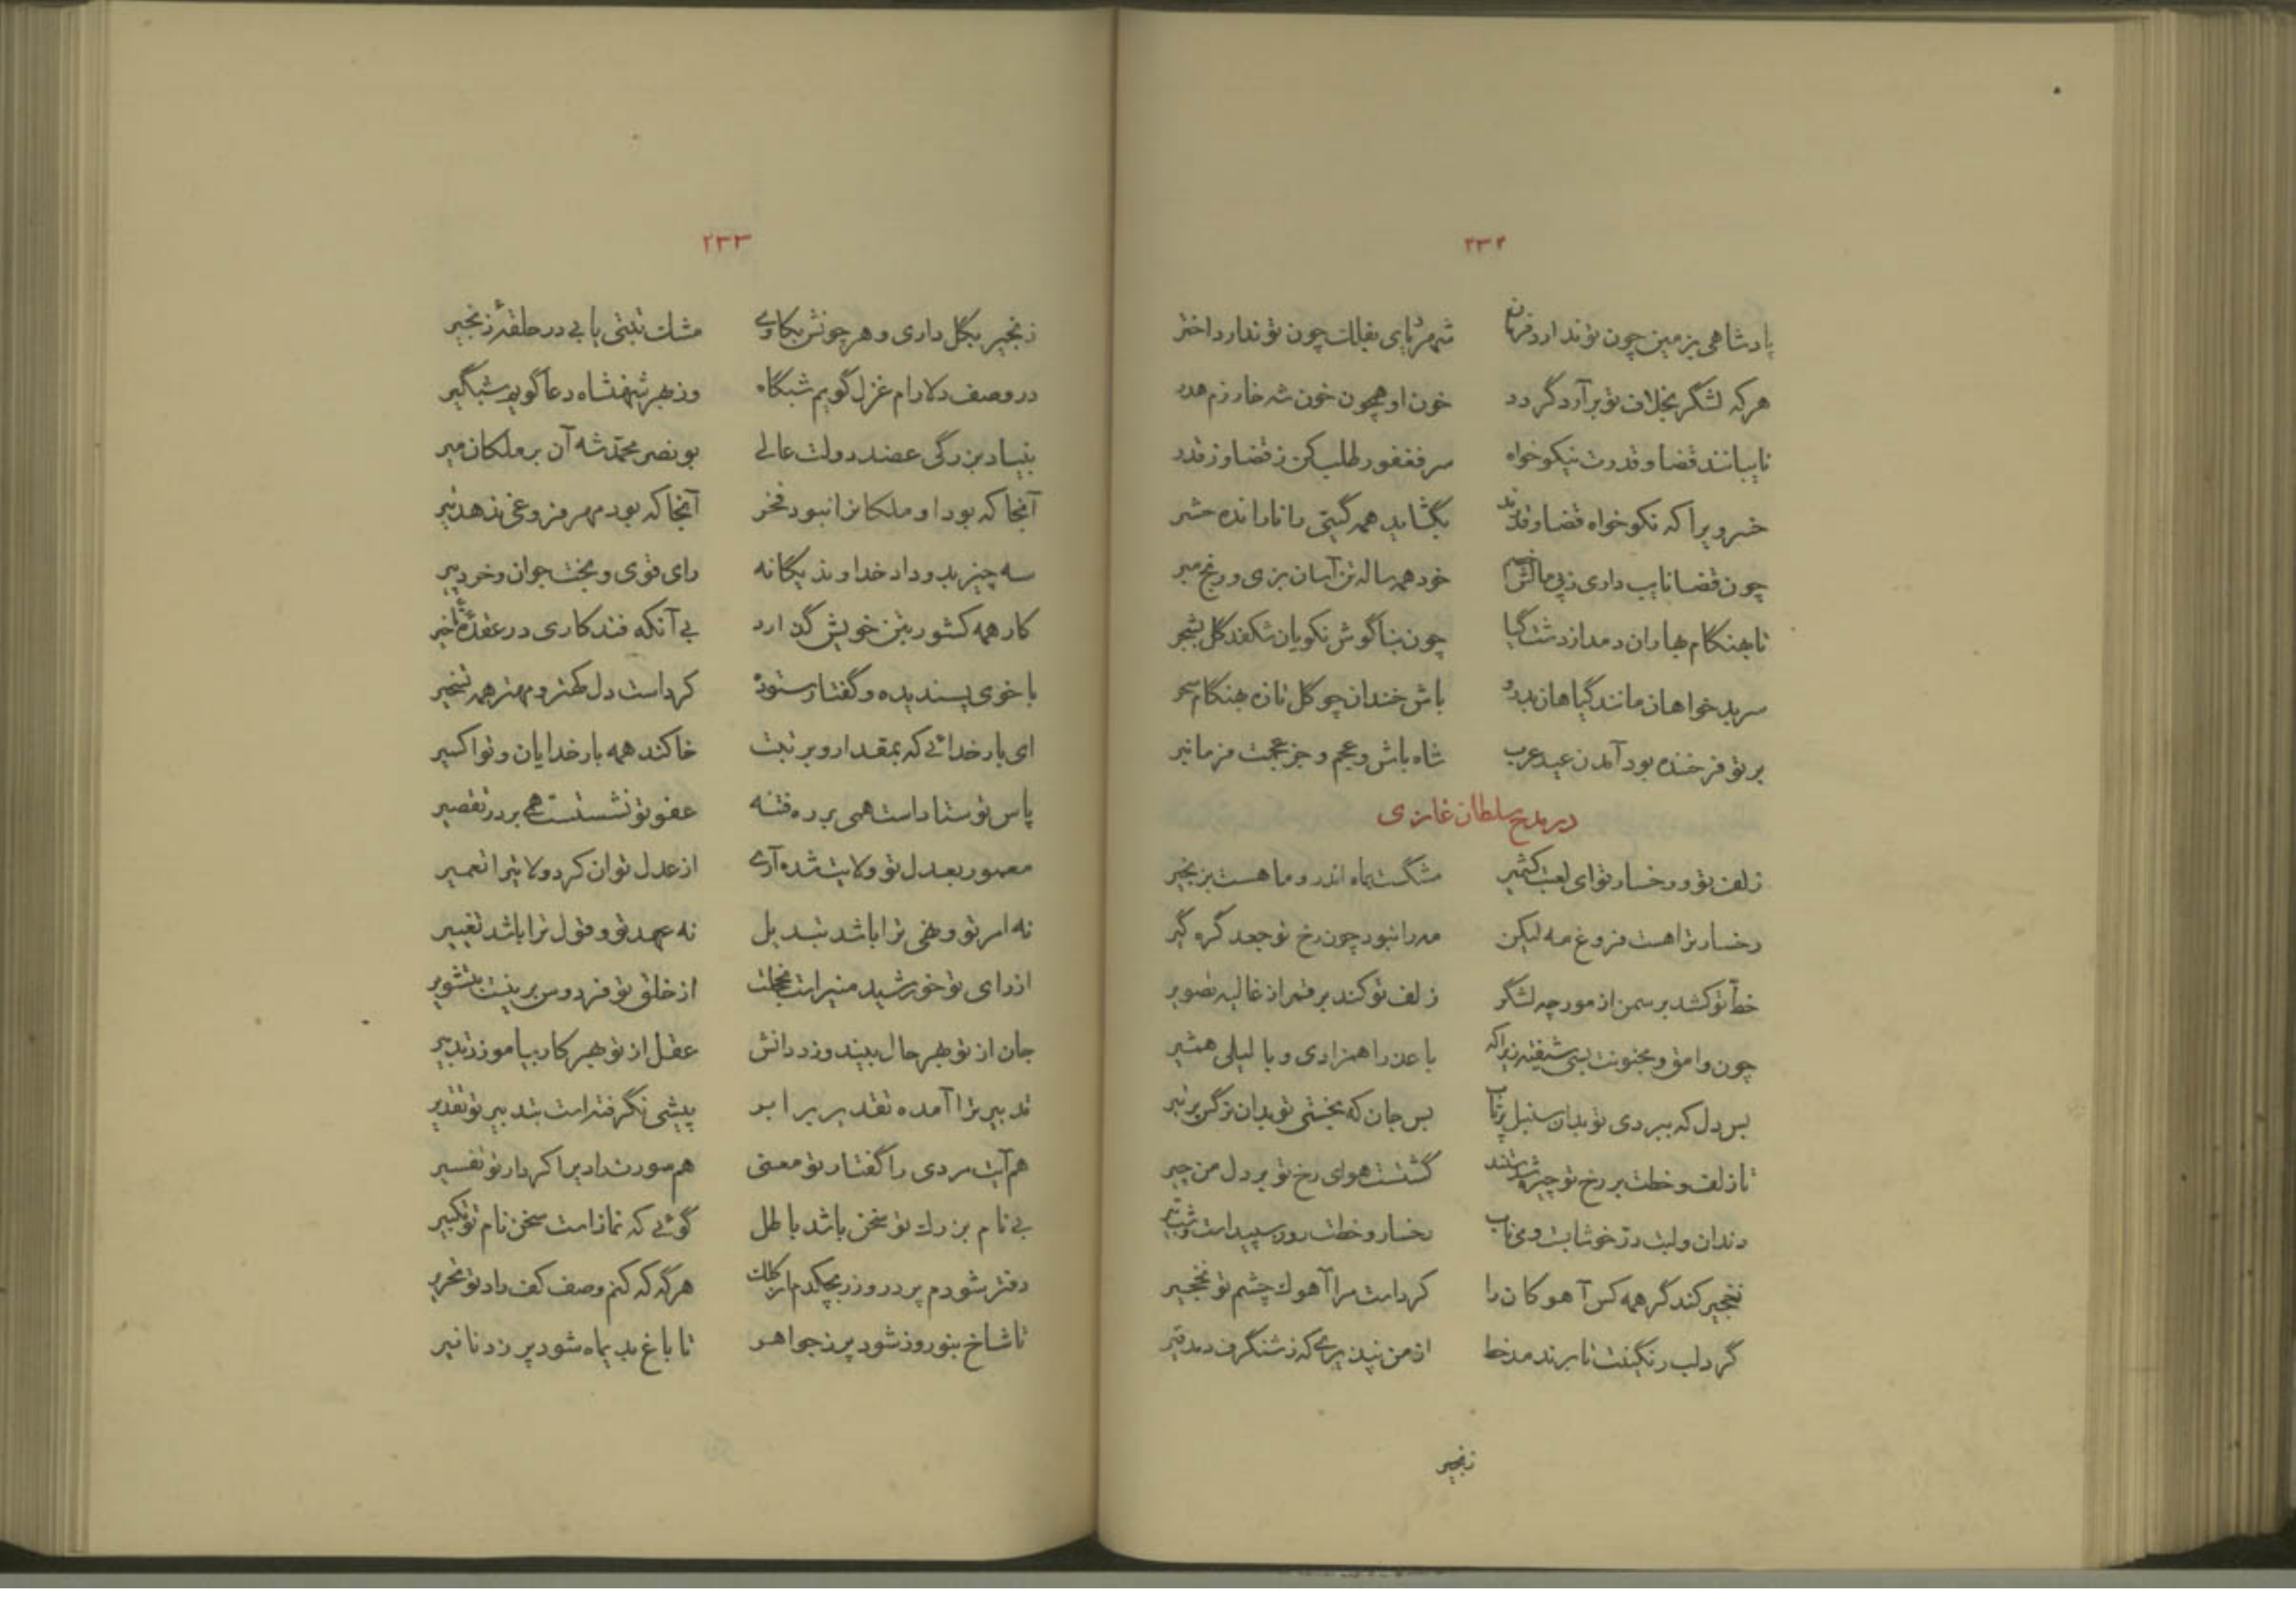 ۲۳۲
پادشاهی بزمین چون تو ندارد فرمان شهریاری بفلک چون تو ندارد اختر
هرکه لشگر بخلاف تو برآرد گردد خون او همچون خون شه خارزم هدر
نایبانند قضا و قدرت نیکو خواه سر فغفور طلب کن ز قضا و ز قدر
خسرویرا که نکو خواه قضا و قدرند بگشاید همه گیتی را ناراندە حشر
چون قضا نایب داری زپی مالش خصم خود همه ساله تن آسان بزی و رنج مبر
تا بهنگام بهاران دمد از دشت گیا چون بناگوش نکویان شکفد گل بشجر
سر بدخواهان مانند گیاهان بدرو باش خندان چو گل تازه بهنگام سحر
بر تو فرخنده بود آمدن عید عرب شاه باش و عجم و جز عجمت فرمانبر
در مدح سلطان غازی
زلف تو و رخسار تو ای لعبت کشمیر مشگست بماه اندر و ماهست بزنجیر
رخسار ترا هست فروغ مه لیکن مه را نبود چون رخ تو جعد گره گیر
خط تو کشد بر سمن از مورچه لشگر زلف تو کند بر قمر از غالیه تصویر
چون وامق و مجنونت بسی شیفته زیراکه با عذرا همزادی و با لیلی همشیر
بس دل که ببردی تو بدان سنبل پرتاب بس جان که بخستی تو بدان نرگس پر تیر
تا زلف و خطت بر رخ تو چیر شدستند گشتست هوای رخ تو بر دل من چیر
دندان و لبت در خوشابت و می ناب رخسار و خطت روز سپید است و شب تیر
نخجیر کند گر همه کس آهوکان را کرد است مرا آهوک چشم تو نخجیر
گرد لب رنگینت تا بر ندمد خط از من نپذیری که ز شنگرف دمد قیر
زنجیر
۲۳۳
زنجیر بگل داری و هر چونش بکاوی مشک تبتی یابی در حلقهٔ زنجیر
در وصف دلارام غزل گویم شبگاه وز بهر شهنشاه دعا گویم شبگیر
بنیاد بزرگی عضد دولت عالی بونصر محمد شه آن بر ملکان میر
آنجا که بود او ملکانرا نبود فخر آنجا که بود مهر فروغی ندهد تیر
سه چیز بدو داد خداوند یگانه رای قوی و بخت جوان و خرد پیر
کار همه کشور بتن خویش گذارد بی آنکه فتد کاری در عقدهٔ تاخیر
با خوی پسندیده و گفتار ستوده کرد است دل کهتر و مهتر همه تسخیر
ای بار خدائی که بمقدار و برتبت خاکند همه بار خدایان و تو اکسیر
پاس تو ستاد است همی بر ره فتنه عفو تو نشستست همی بر در تقصیر
معمور بعدل تو ولایت شده آری از عدل توان کرد ولایترا تعمیر
نه امر تو و نهی ترا باشد تبدیل نه عهد تو و قول ترا باشد تغییر
از رای تو خورشید منیر است بخجلت از خلق تو فردوس برینست بتشویر
جان از تو بهر حال ببیند وزر دانش عقل از تو بهر کار بیاموزد تدبیر
تدبیر ترا آمده تقدیر برابر پیشی نگرفته است بتدبیر تو تقدیر
هم آیت مردی را گفتار تو معنی هم صورت رادیرا کردار تو تفسیر
بی نام بزرگ تو سخن باشد باطل گوئی که نماز است سخن نام تو تکبیر
دفتر شودم پر در و زر بچکدم از کلک هرگه که کنم وصف کف راد تو تحریر
تا شاخ بنوروز شود پر ز جواهر تا باغ بدیماه شود پر ز دنانیر